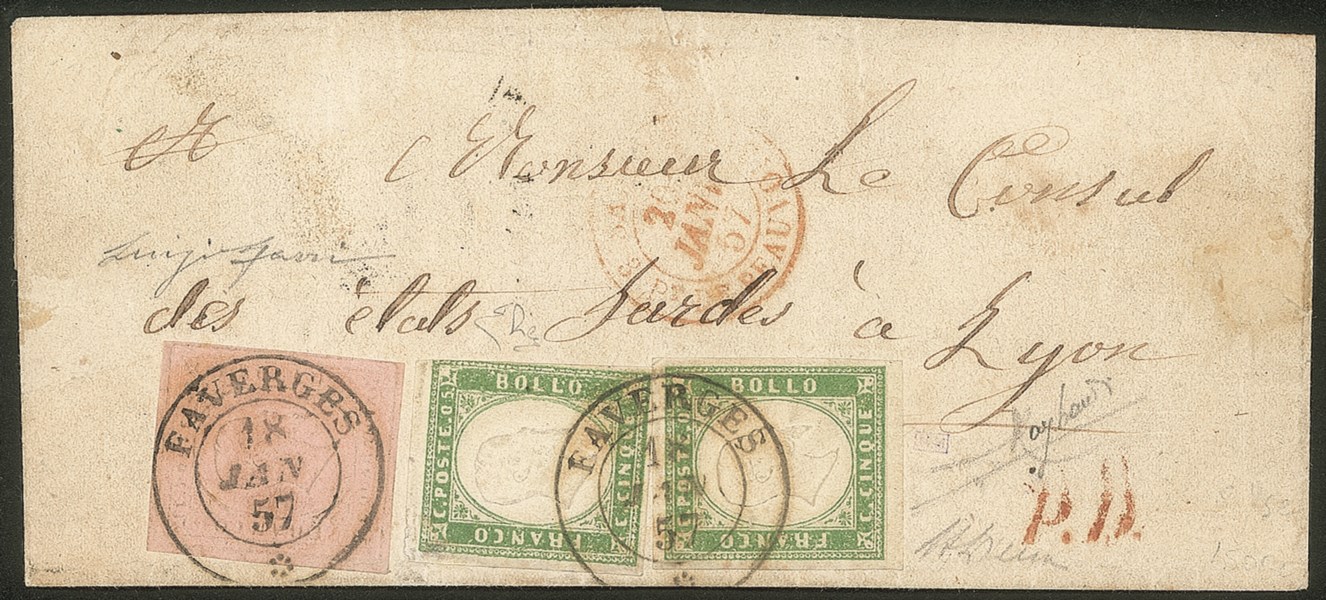 A Monsieur Le Consul
des états Sardes à
Lyon
Luigi
20
JANV
57
FAVERGES
18
JAN
57
BOLLO
C. POSTE. 05
C. CINQUE
FRANCO
FAVERGES
18
JAN
57
BOLLO
C. POSTE. 05
C. CINQUE
FRANCO
Raybaudi
P.D.